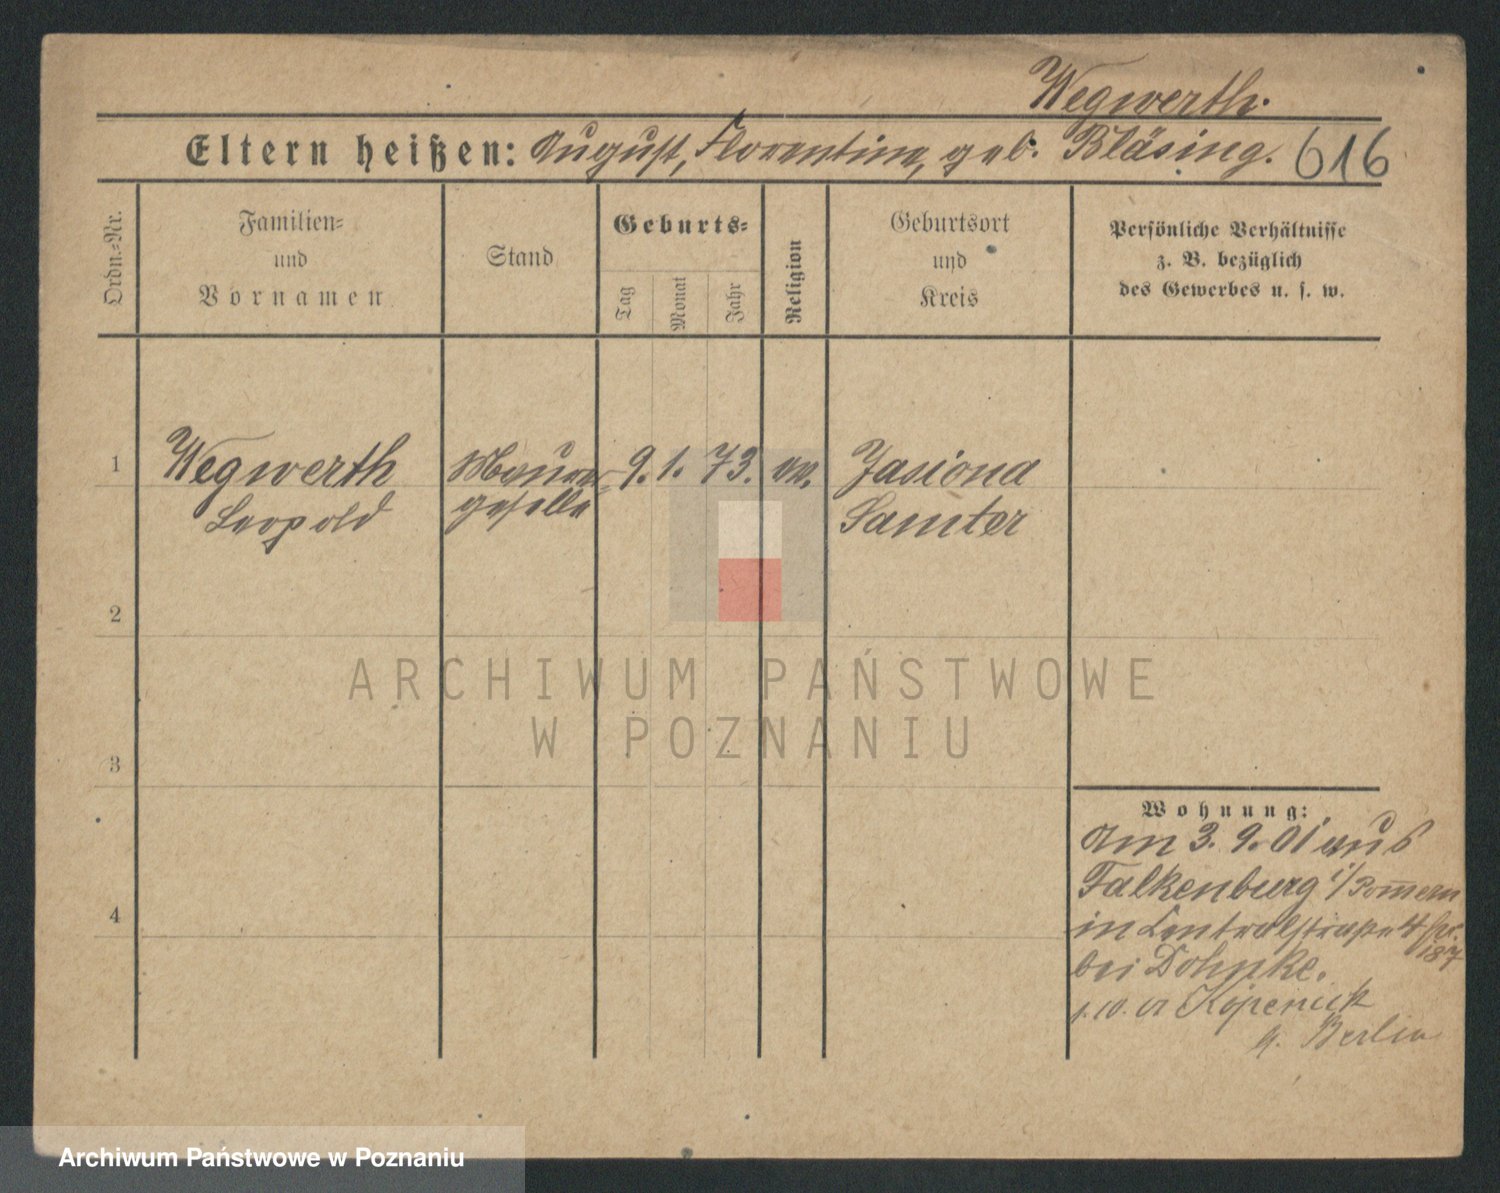 Wegwerth.
Eltern heißen: August, Florentine, geb. Bläsing. 616
Ordn.=Nr.
Familien=
und
Vornamen
Stand
Geburts=
Tag
Monat
Jahr
Religion
Geburtsort
und
Kreis
Persönliche Verhältnisse
z. B. bezüglich
des Gewerbes u. s. w.
1 Wegwerth Maurer= 9. 1. 73. ev. Jasiona
Leopold geselle Samter
2
ARCHIWUM PAŃSTWOWE
W POZNANIU
3
Wohnung:
Am 3. 9. 01 aus
Falkenburg i/Pommern
4
in Centralstraße 4
187
bei Dohnke.
1. 10. 01 Köpenick
b. Berlin
Archiwum Państwowe w Poznaniu